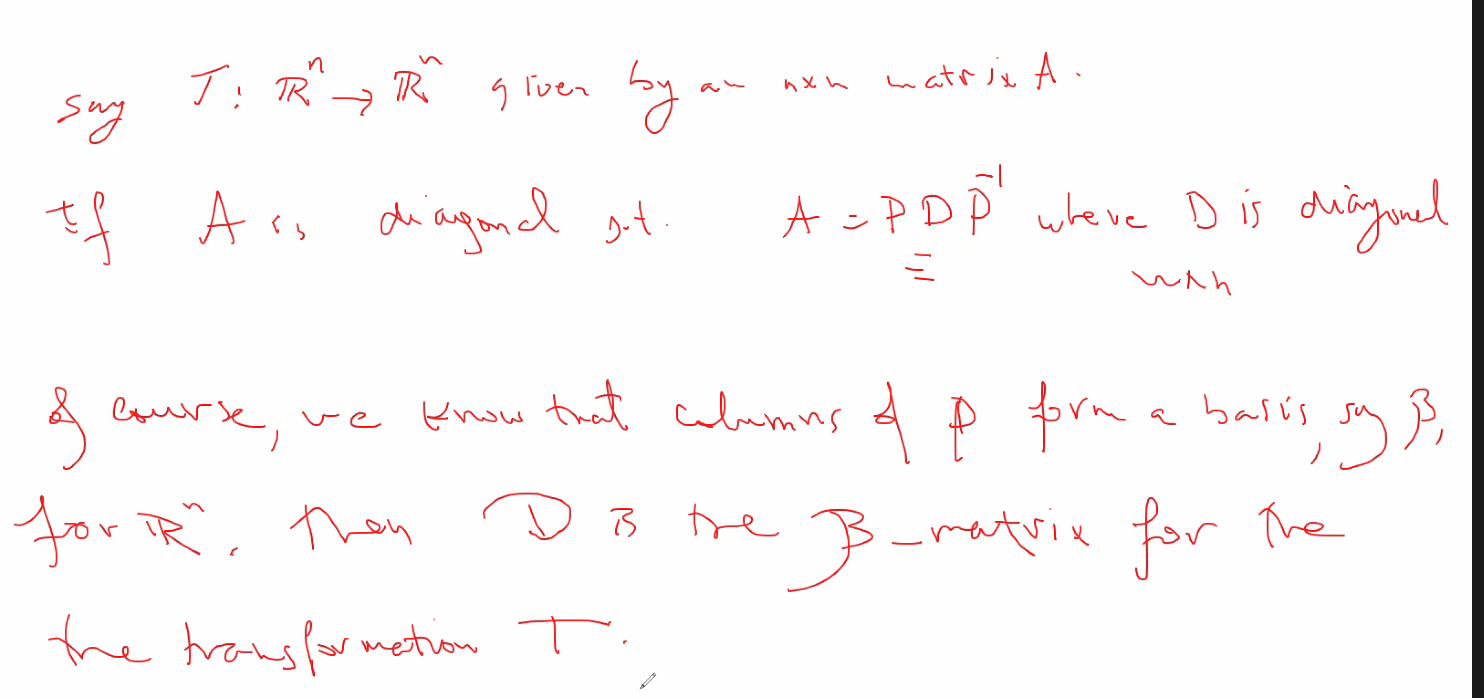 say T: ℝⁿ → ℝⁿ given by an n×n matrix A.
If A is diagonal s.t. A = P D P⁻¹ where D is diagonal
n×n
Of course, we know that columns of P form a basis, say β,
for ℝⁿ. Then D is the β-matrix for the
the transformation T.